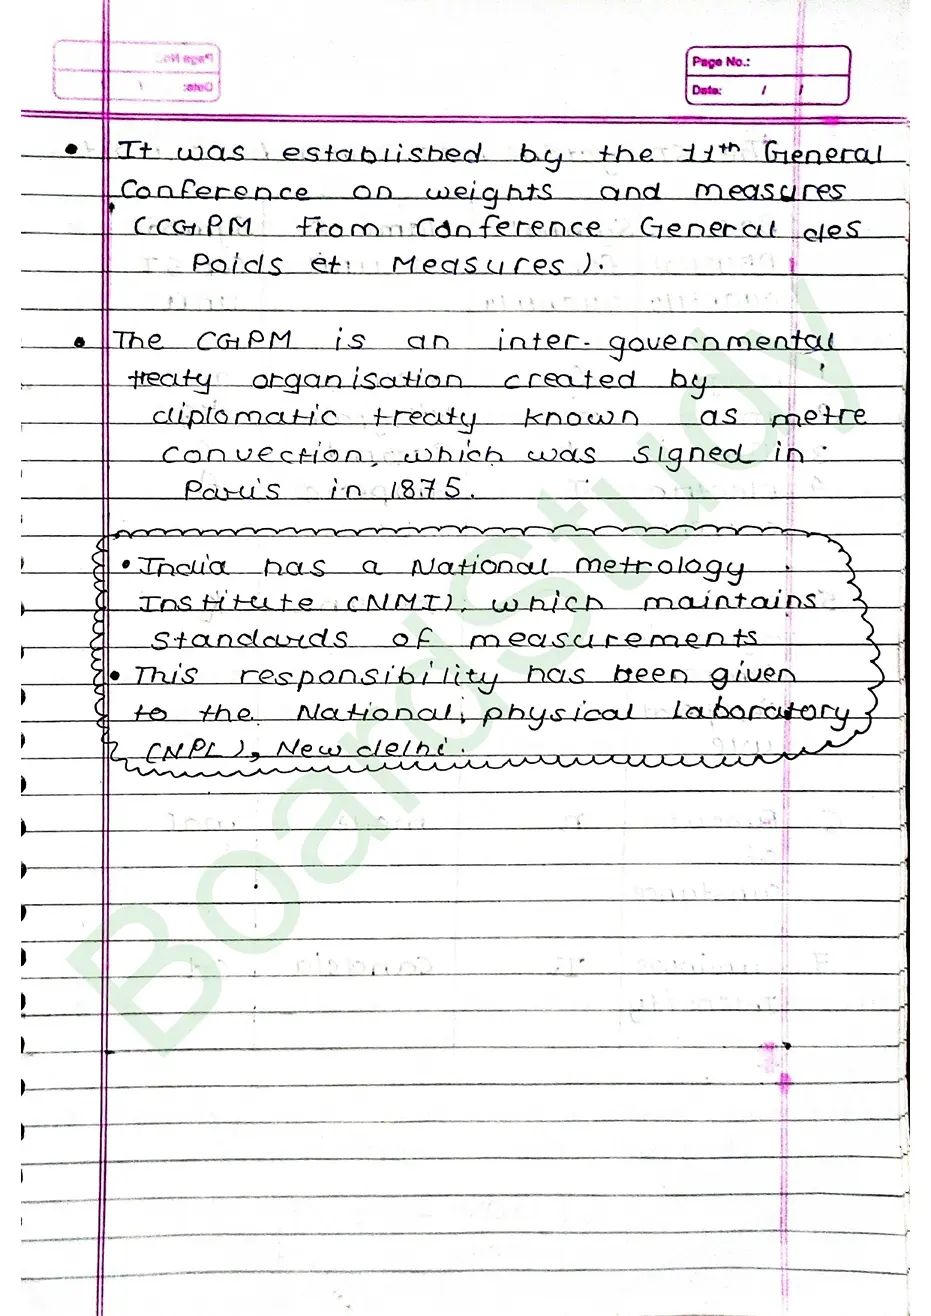 Page No.:
Date: / /
• It was established by the 11th General
Conference on weights and measures
(CGPM from Conference General des
Poids et Measures).
• The CGPM is an inter-governmental
treaty organisation created by
diplomatic treaty known as metre
convection, which was signed in
Paris in 1875.
• India has a National metrology
Institute (NMI), which maintains
standards of measurements
• This responsibility has been given
to the National, physical Laboratory
(NPL), New delhi.
BoardStudy